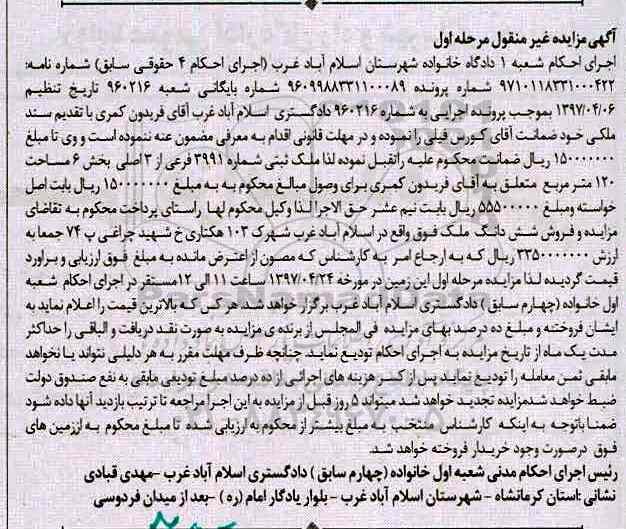 آگهی مزایده غیر منقول مرحله اول
اجرای احکام شعبه ۱ دادگاه خانواده شهرستان اسلام آباد غرب (اجرای احکام ۴ حقوقی سابق) شماره نامه:
۹۷۱۰۱۱۸۳۳۱۰۰۰۴۲۲ شماره پرونده ۹۶۰۹۹۸۸۳۳۱۱۰۰۰۸۹ شماره بایگانی شعبه ۹۶۰۲۱۶ تاریخ تنظیم
۱۳۹۷/۰۴/۰۶ بموجب پرونده اجرایی به شماره ۹۶۰۲۱۶ دادگستری اسلام آباد غرب آقای فریدون کمری با تقدیم سند
ملکی خود ضمانت آقای کورس فیلی را نموده و در مهلت قانونی اقدام به معرفی مضمون عنه ننموده است و وی تا مبلغ
۱۵۰۰۰۰۰۰۰ ریال ضمانت محکوم علیه راتقبل نموده لذا ملک ثبتی شماره ۳۹۹۱ فرعی از ۳ اصلی بخش ۶ مساحت
۱۲۰ متر مربع متعلق به آقای فریدون کمری برای وصول مبالغ محکوم به به مبلغ ۱۵۰۰۰۰۰۰۰ ریال بابت اصل
خواسته ومبلغ ۵۵۵۰۰۰۰۰ ریال بابت نیم عشر حق الاجرا لذا وکیل محکوم لها راستای پرداخت محکوم به تقاضای
مزایده و فروش شش دانگ ملک فوق واقع در اسلام آباد غرب شهرک ۱۰۳ هکتاری خ شهید چراغی پ ۷۴ جمعا به
ارزش ۳۳۵۰۰۰۰۰۰۰ ریال که به ارجاع امر به کارشناس که مصون از اعترض مانده به مبلغ فوق ارزیابی و براورد
قیمت گردیده لذا مزایده مرحله اول این زمین در مورخه ۱۳۹۷/۰۴/۲۴ ساعت ۱۱ الی ۱۲مستقر در اجرای احکام شعبه
اول خانواده (چهارم سابق) دادگستری اسلام آباد غرب برگزار خواهد شد. هر کس که بالاترین قیمت را اعلام نماید به
ایشان فروخته و مبلغ ده درصد بهای مزایده فی المجلس از برنده ی مزایده به صورت نقد دریافت و الباقی را حداکثر
مدت یک ماه از تاریخ مزایده به اجرای احکام تودیع نماید. چنانچه ظرف مهلت مقرر به هر دلیلی نتواند یا نخواهد
مابقی ثمن معامله را تودیع نماید پس از کسر هزینه های اجرائی از ده درصد مبلغ تودیعی مابقی به نفع صندوق دولت
ضبط خواهد شدمزایده تجدید خواهد شد میتواند ۵ روز قبل از مزایده به این اجرا مراجعه تا ترتیب بازدید آنها داده شود
ضمنا باتوجه به اینکه کارشناس منتخب به مبلغ بیشتر از محکوم به ارزیابی شده تا مبلغ محکوم به اززمین های
فوق درصورت وجود خریدار فروخته خواهد شد.
رئیس اجرای احکام مدنی شعبه اول خانواده (چهارم سابق ) دادگستری اسلام آباد غرب -مهدی قبادی
نشانی :استان کرمانشاه - شهرستان اسلام آباد غرب - بلوار یادگار امام (ره ) -بعد از میدان فردوسی